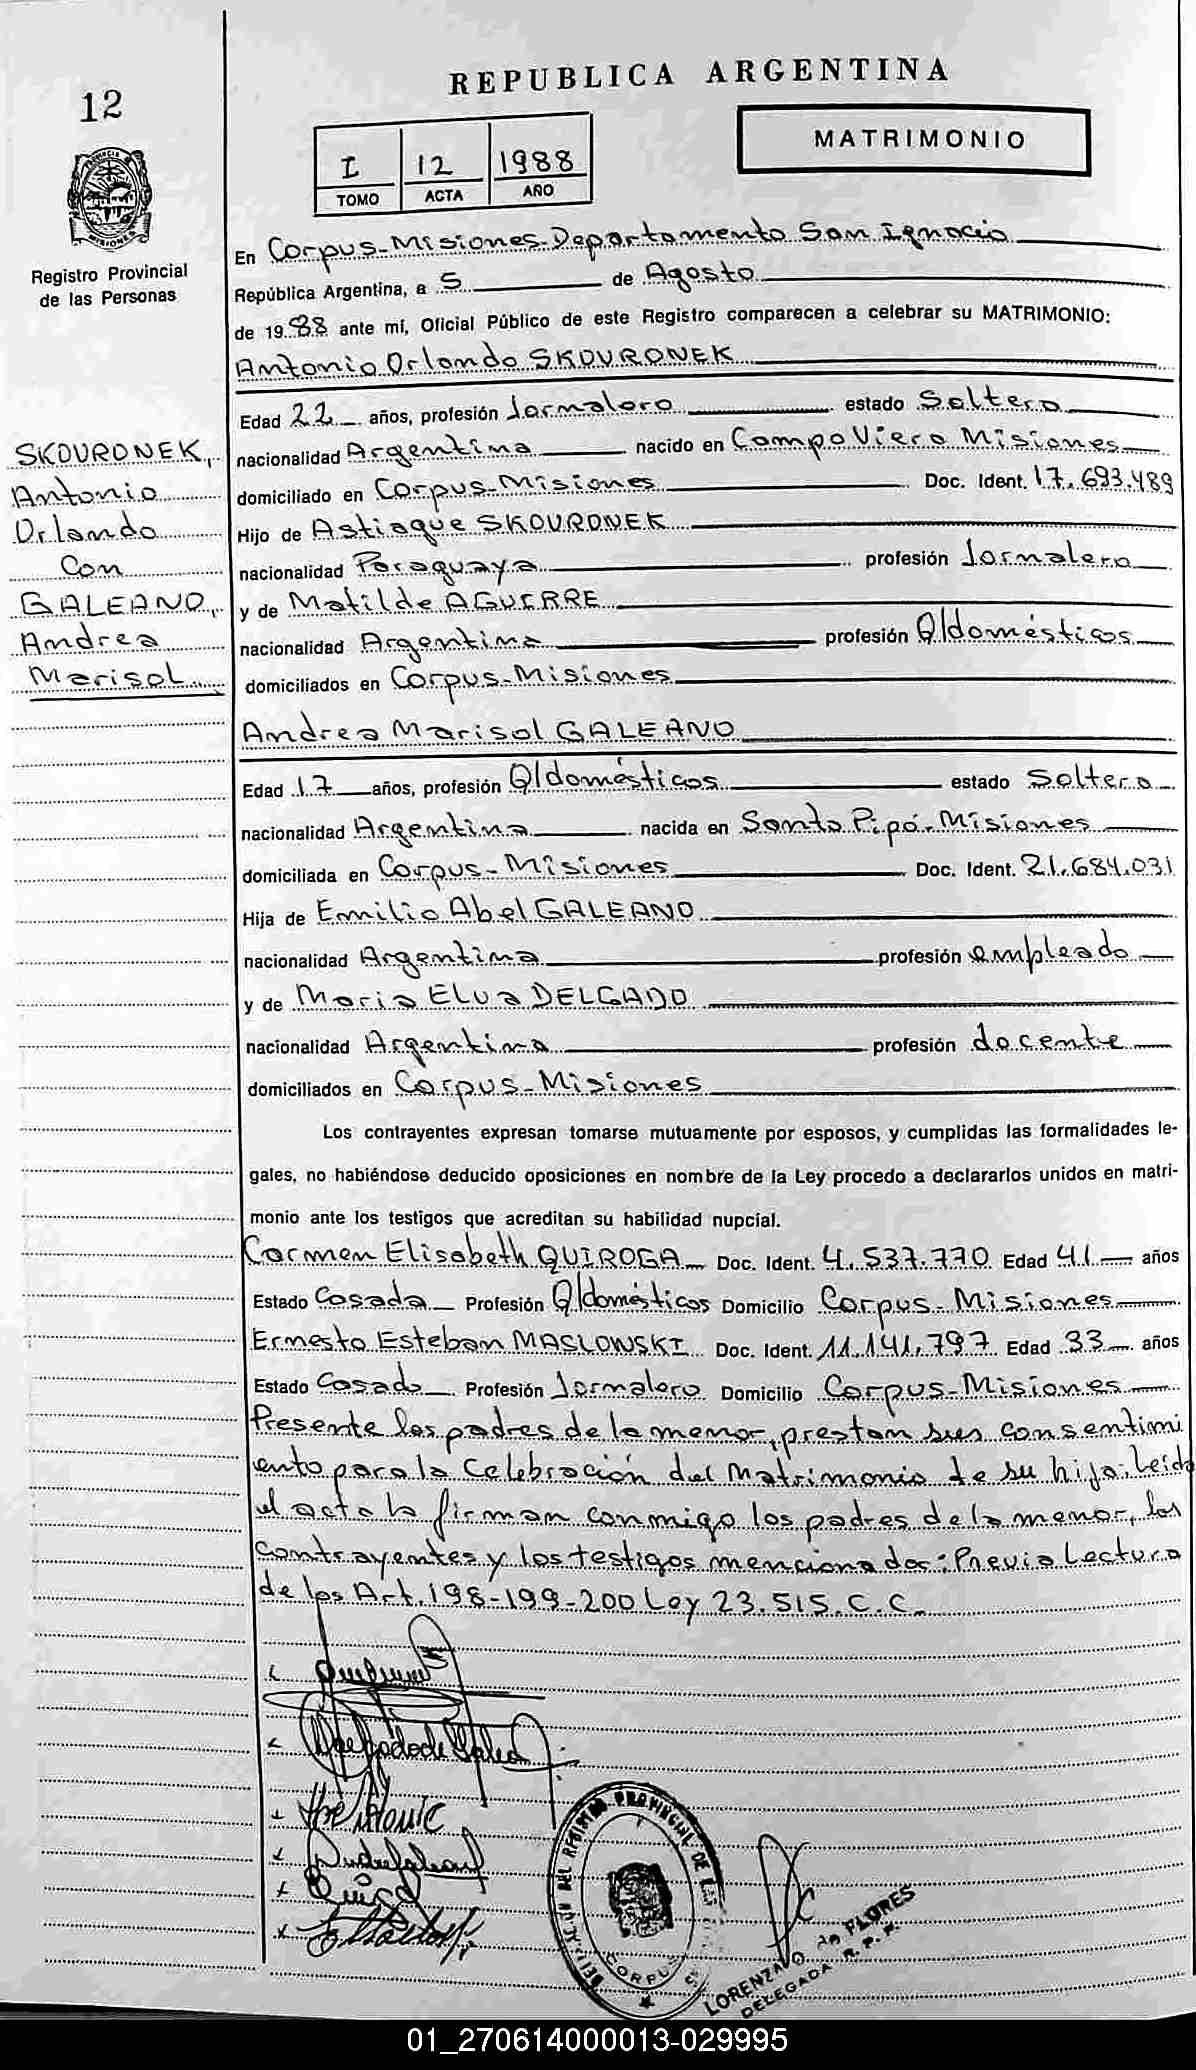 REPUBLICA ARGENTINA
12
MATRIMONIO
I 12 1988
TOMO ACTA AÑO
Registro Provincial
de las Personas
En Corpus-Misiones-Departamento San Ignacio
República Argentina, a 5 de Agosto
de 1988 ante mí, Oficial Público de este Registro comparecen a celebrar su MATRIMONIO:
Antonio Orlando SKOVRONEK
Edad 22 años, profesión Jornalero estado Soltero
SKOVRONEK,
Antonio
Orlando
Con
GALEANO,
Andrea
Marisol
nacionalidad Argentina nacido en Campo Viera Misiones
domiciliado en Corpus Misiones Doc. Ident. 17.693.489
Hijo de Astiaque SKOVRONEK
nacionalidad Paraguaya profesión Jornalero
y de Matilde AGUERRE
nacionalidad Argentina profesión Q/domésticos
domiciliados en Corpus-Misiones
Andrea Marisol GALEANO
Edad 17 años, profesión Q/domésticos estado Soltera
nacionalidad Argentina nacida en Santo Pipó-Misiones
domiciliada en Corpus-Misiones Doc. Ident. 21.684.031
Hija de Emilio Abel GALEANO
nacionalidad Argentina profesión empleado
y de Maria Elva DELGADO
nacionalidad Argentina profesión docente
domiciliados en Corpus-Misiones
Los contrayentes expresan tomarse mutuamente por esposos, y cumplidas las formalidades le-
gales, no habiéndose deducido oposiciones en nombre de la Ley procedo a declararlos unidos en matri-
monio ante los testigos que acreditan su habilidad nupcial.
Carmen Elisabeth QUIROGA Doc. Ident. 4.537.770 Edad 41 años
Estado Casada Profesión Q/domésticos Domicilio Corpus-Misiones
Ernesto Esteban MASLOWSKI Doc. Ident. 11.141.797 Edad 33 años
Estado Casado Profesión Jornalero Domicilio Corpus-Misiones
Presente los padres de la menor, prestan sus consentimi
ento para la celebración del Matrimonio de su hija. Leida
el acta la firman conmigo los padres de la menor, los
contrayentes y los testigos mencionados: Previa Lectura
de los Art. 198-199-200 Ley 23.515.C.C.
DELEGACION DEL REGISTRO PROVINCIAL DE LAS
CORPUS
FLORES
DELEGADA R. P. P.
01_270614000013-029995